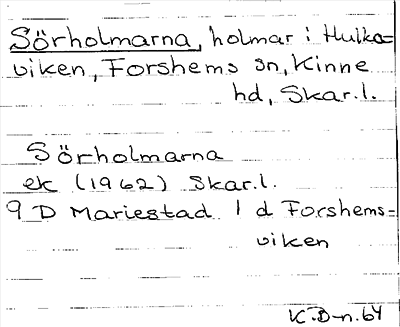 Sörholmarna, holmar i Hulka=
viken, Forshems sn, Kinne
hd, Skar.l.
Sörholmarna
ek (1962) Skar.l.
9 D Mariestad 1 d Forshems=
viken
K.D-n.64